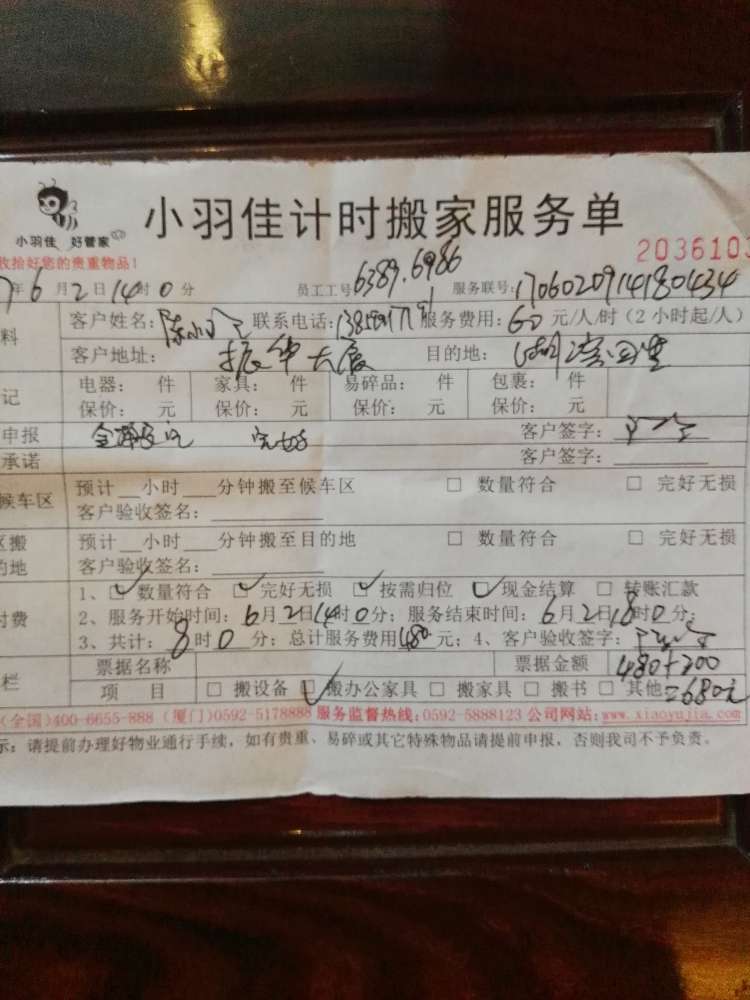 小羽佳计时搬家服务单
小羽佳 好管家
收拾好您的贵重物品!
2036103
7年6月2日14时0分 员工工号 6389.6986 服务联号:1706020914180434
料 客户姓名:陈小 联系电话: 服务费用:60元/人/时(2小时起/人)
客户地址:振华大厦 目的地:
记 电器: 件 家具: 件 易碎品: 件 包裹: 件
保价: 元 保价: 元 保价: 元 保价: 元
申报 完好 客户签字:
承诺 客户签字:
候车区 预计__小时___分钟搬至候车区 □ 数量符合 □ 完好无损
客户验收签名:
区搬 预计__小时___分钟搬至目的地 □ 数量符合 □ 完好无损
的地 客户验收签名:
1、☑数量符合 ☑完好无损 ☑按需归位 ☑现金结算 □ 转账汇款
付费 2、服务开始时间:6月2日14时0分;服务结束时间:6月2日18时0分;
3、共计:8时0分;总计服务费用480元;4、客户验收签字:
票据名称 票据金额 480+200
栏 项 目 □ 搬设备 ☑搬办公家具 □ 搬家具 □ 搬书 □ 其他 =680元
(全国)400-6655-888 (厦门)0592-5178888 服务监督热线:0592-5888123 公司网站:www.xiaoyujia.com
示:请提前办理好物业通行手续,如有贵重、易碎或其它特殊物品请提前申报,否则我司不予负责。